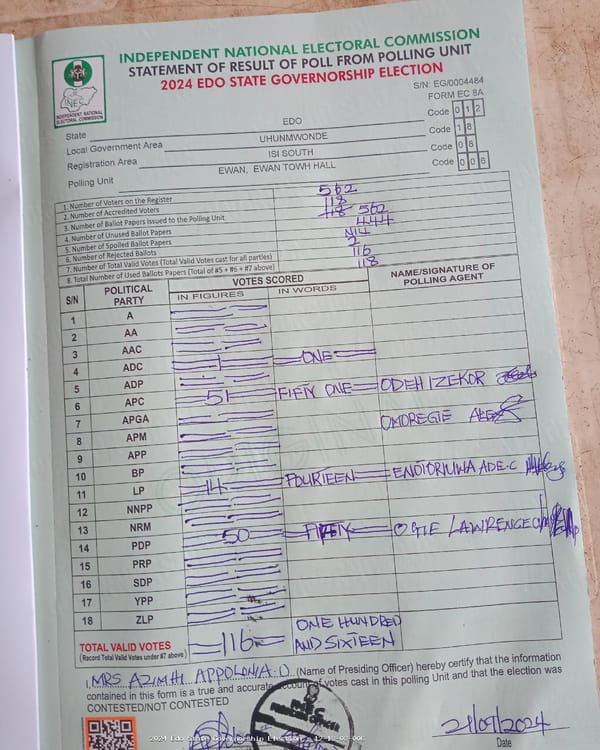 INDEPENDENT NATIONAL ELECTORAL COMMISSION
STATEMENT OF RESULT OF POLL FROM POLLING UNIT
2024 EDO STATE GOVERNORSHIP ELECTION
INEC
INDEPENDENT NATIONAL ELECTORAL COMMISSION
S/N: EG/0004484
FORM EC 8A
State EDO Code 012
Local Government Area UHUNMWONDE Code 18
Registration Area ISI SOUTH Code 08
Polling Unit EWAN, EWAN TOWH HALL Code 006
1. Number of Voters on the Register 562
2. Number of Accredited Voters 118
3. Number of Ballot Papers Issued to the Polling Unit 118 562
4. Number of Unused Ballot Papers 444
5. Number of Spoiled Ballot Papers Nil
6. Number of Rejected Ballots 2
7. Number of Total Valid Votes (Total Valid Votes cast for all parties) 116
8. Total Number of Used Ballots Papers (Total of #5 + #6 + #7 above) 118
S/N POLITICAL PARTY VOTES SCORED NAME/SIGNATURE OF POLLING AGENT
IN FIGURES IN WORDS
1 A
2 AA
3 AAC
4 ADC 1 ONE
5 ADP
6 APC 51 FIFTY ONE ODEH IZEKOR
7 APGA
8 APM OMOREGIE
9 APP
10 BP
11 LP 14 FOURTEEN ADE.C
12 NNPP
13 NRM
14 PDP 50 FIFTY OGIE LAWRENCE
15 PRP
16 SDP
17 YPP
18 ZLP
TOTAL VALID VOTES 116 ONE HUNDRED AND SIXTEEN
(Record Total Valid Votes under #7 above)
I, MRS AZIMHI APPOLONIA.O (Name of Presiding Officer) hereby certify that the information
contained in this form is a true and accurate account of votes cast in this polling Unit and that the election was
CONTESTED/NOT CONTESTED
PRESIDING OFFICER
21/09/2024
Date
2024 Edo State Governorship Election - 12-18-08-006